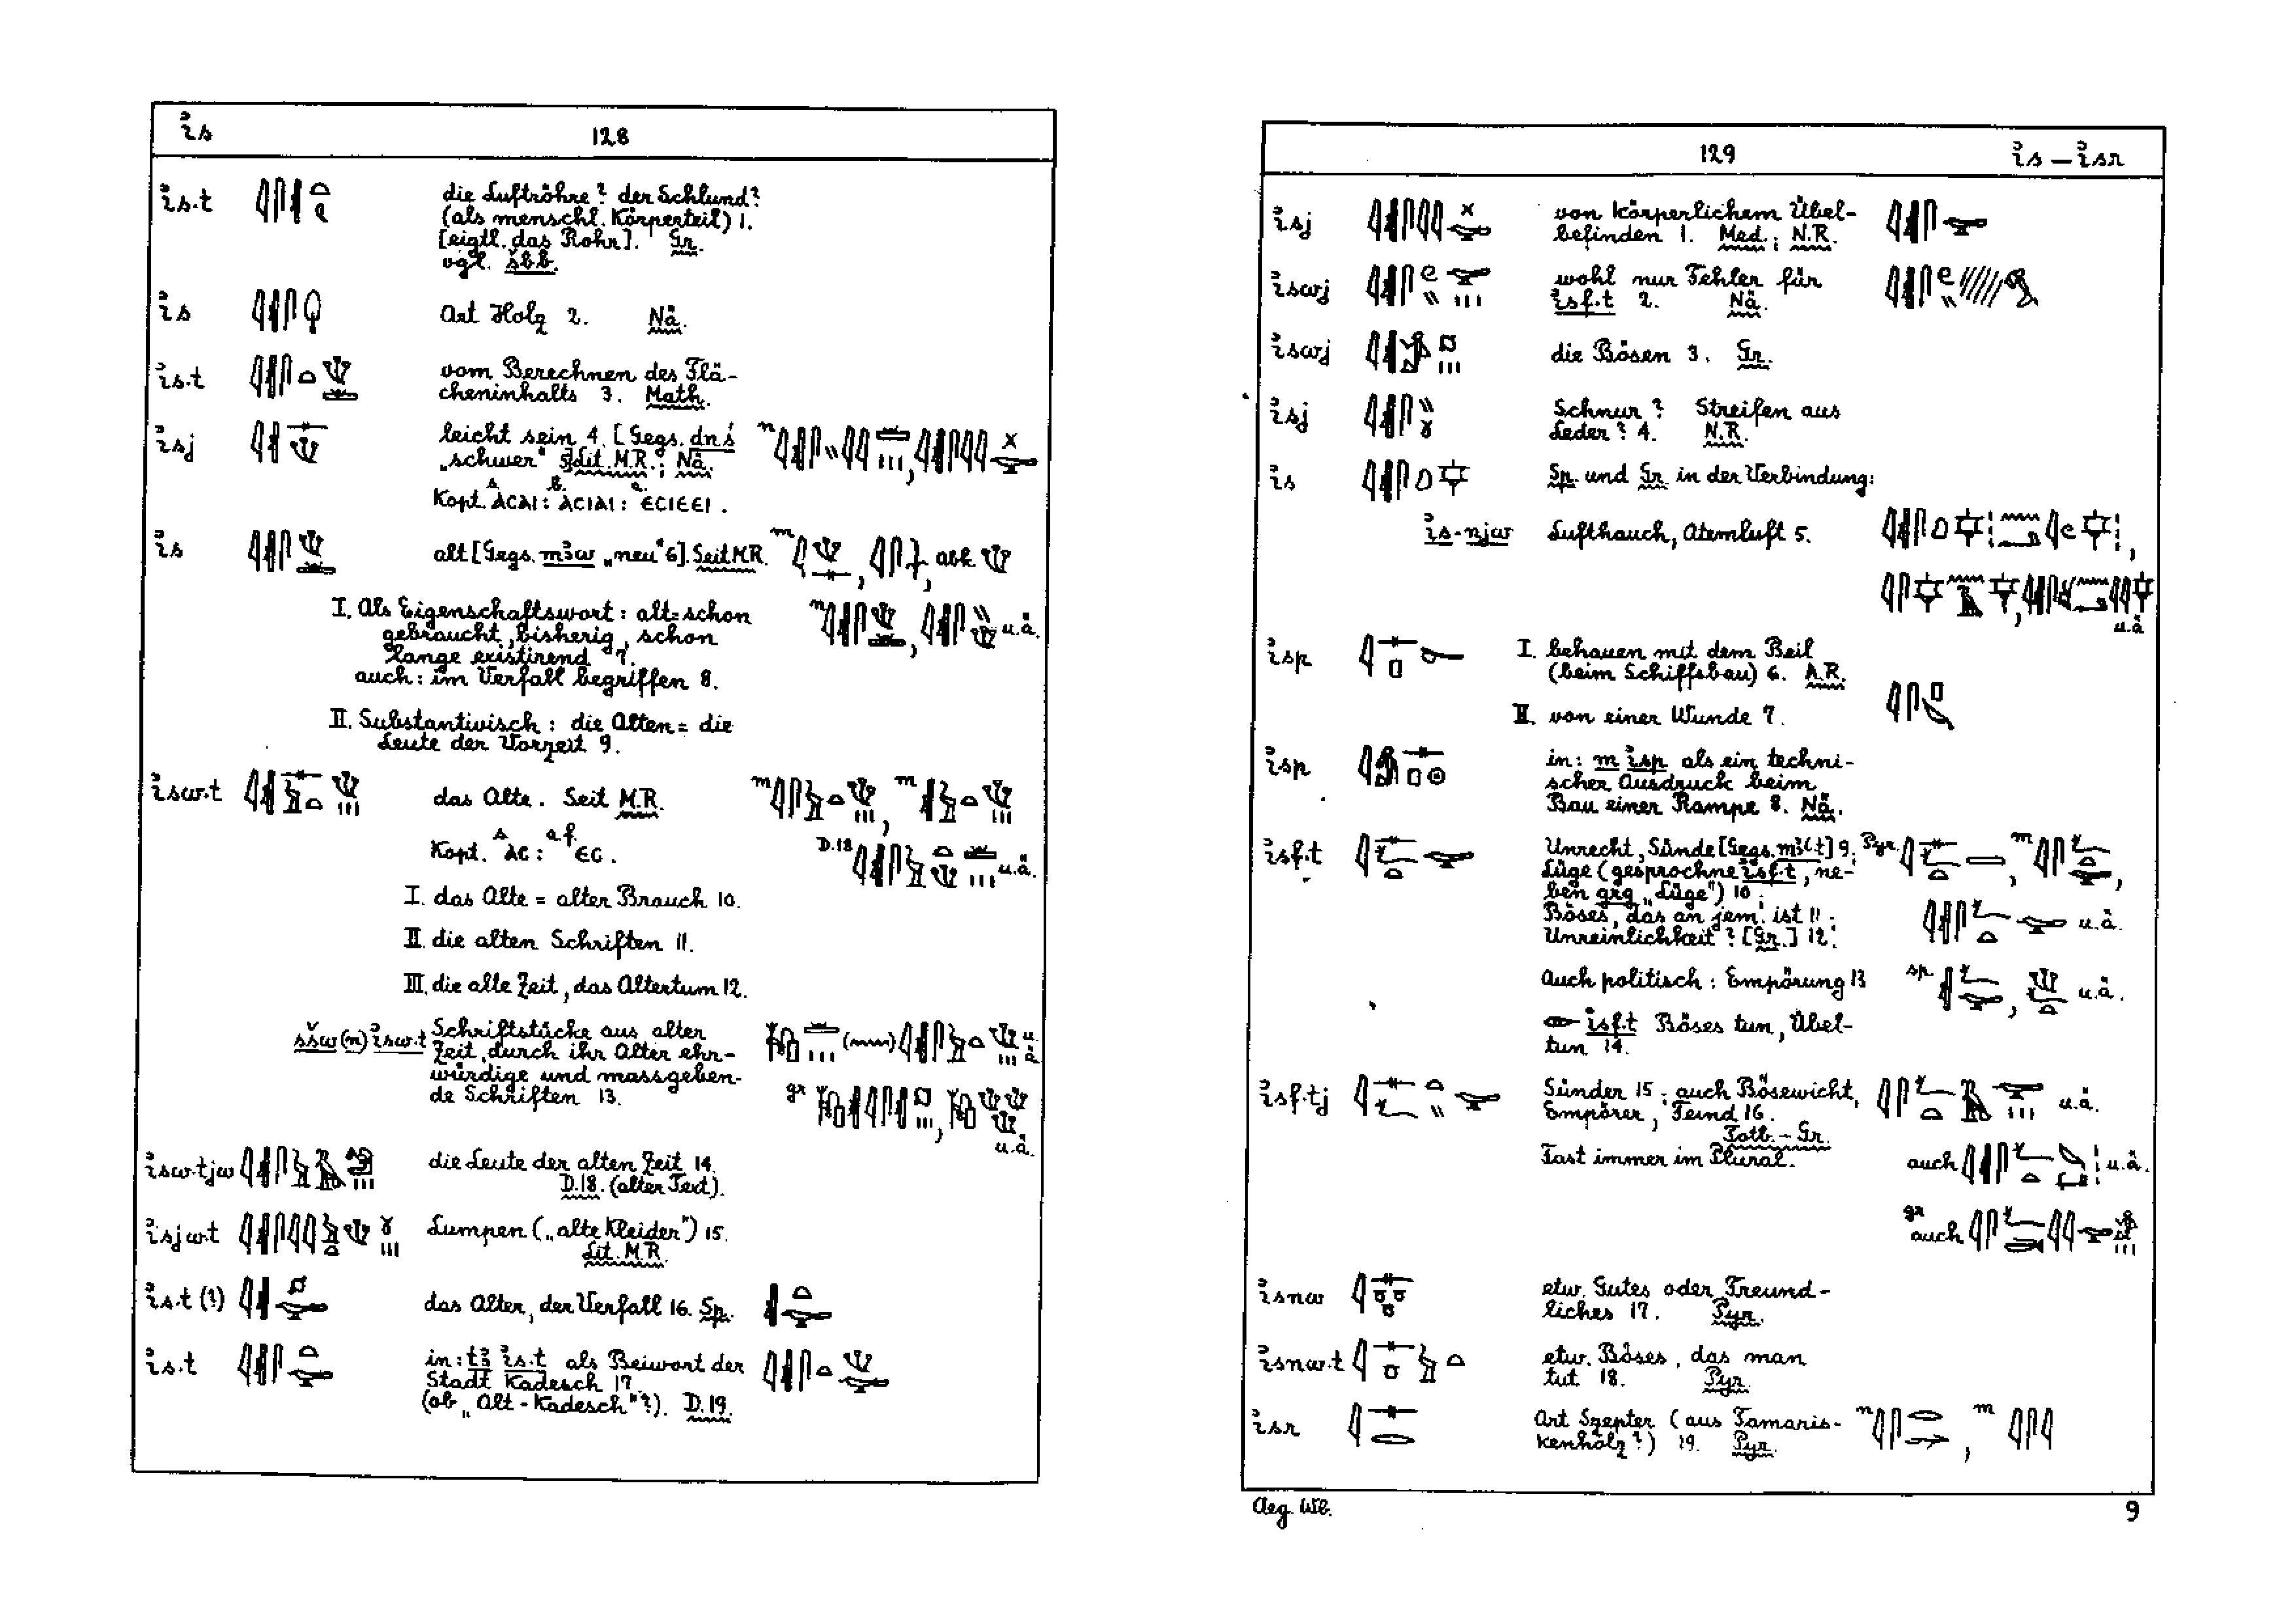 ỉs
128
ỉs.t die Luftröhre? der Schlund?
(als menschl. Körperteil) 1.
[eigtl. das Rohr]. Gr.
vgl. šbb.
ỉs Art Holz 2. Nä.
ỉs.t vom Berechnen des Flä-
cheninhalts 3. Math.
ỉsj leicht sein 4. [Gegs. dnś
„schwer“ 5] Lit. M.R.; Nä.
Kopt. ⲁⲥⲁⲓ : ⲁⲥⲓⲁⲓ : ⲉⲥⲓⲉⲉⲓ.
ỉs alt [Gegs. mꜣw „neu“ 6]. Seit M.R. abk.
I. Als Eigenschaftswort: alt = schon
gebraucht, bisherig, schon u.ä.
lange existirend 7.
auch: im Verfall begriffen 8.
II. Substantivisch: die Alten = die
Leute der Vorzeit 9.
ỉsw.t das Alte. Seit M.R.
Kopt. ⲁⲥ : ⲉⲥ. D.18 u.ä.
I. das Alte = alter Brauch 10.
II. die alten Schriften 11.
III. die alte Zeit, das Altertum 12.
sšw (n) ỉsw.t Schriftstücke aus alter u.ä.
Zeit, durch ihr Alter ehr-
würdige und massgeben-
de Schriften 13. gr u.ä.
ỉsw.tjw die Leute der alten Zeit 14.
D.18. (alter Text).
ỉsjw.t Lumpen („alte Kleider“) 15.
Lit. M.R.
ỉs.t (?) das Alter, der Verfall 16. Sp.
ỉs.t in: tꜣ ỉs.t als Beiwort der
Stadt Kadesch 17
(ob „Alt-Kadesch“?). D.19.
129
ỉs — ỉsr
ỉsj von körperlichem Übel-
befinden 1. Med.; N.R.
ỉswj wohl nur Fehler für
ỉsf.t 2. Nä.
ỉswj die Bösen 3. Gr.
ỉsj Schnur? Streifen aus
Leder? 4. N.R.
ỉs Sp. und Gr. in der Verbindung:
ỉs-njw Lufthauch, Atemluft 5.
u.ä
ỉsp I. behauen mit dem Beil
(beim Schiffsbau) 6. A.R.
II. von einer Wunde 7.
ỉsp in: m ỉsp als ein techni-
scher Ausdruck beim
Bau einer Rampe 8. Nä.
ỉsf.t Unrecht, Sünde [Gegs. mꜣꜥ.t] 9. Pyr.
Lüge (gesprochne ỉsf.t, ne-
ben grg „Lüge“) 10;
Böses, das an jem. ist 11. u.ä.
Unreinlichkeit? [Gr.] 12.
Auch politisch: Empörung 13 sp. u.ä.
ỉsf.t Böses tun, Übel-
tun 14.
ỉsf.tj Sünder 15; auch Bösewicht, u.ä.
Empörer, Feind 16.
Totb. – Gr.
Fast immer im Plural. auch u.ä.
gr auch
ỉsnw etw. Gutes oder Freund-
liches 17. Pyr.
ỉsnw.t etw. Böses, das man
tut 18. Pyr.
ỉsr Art Szepter (aus Tamaris-
kenholz?) 19. Pyr.
Aeg. Wb.
9